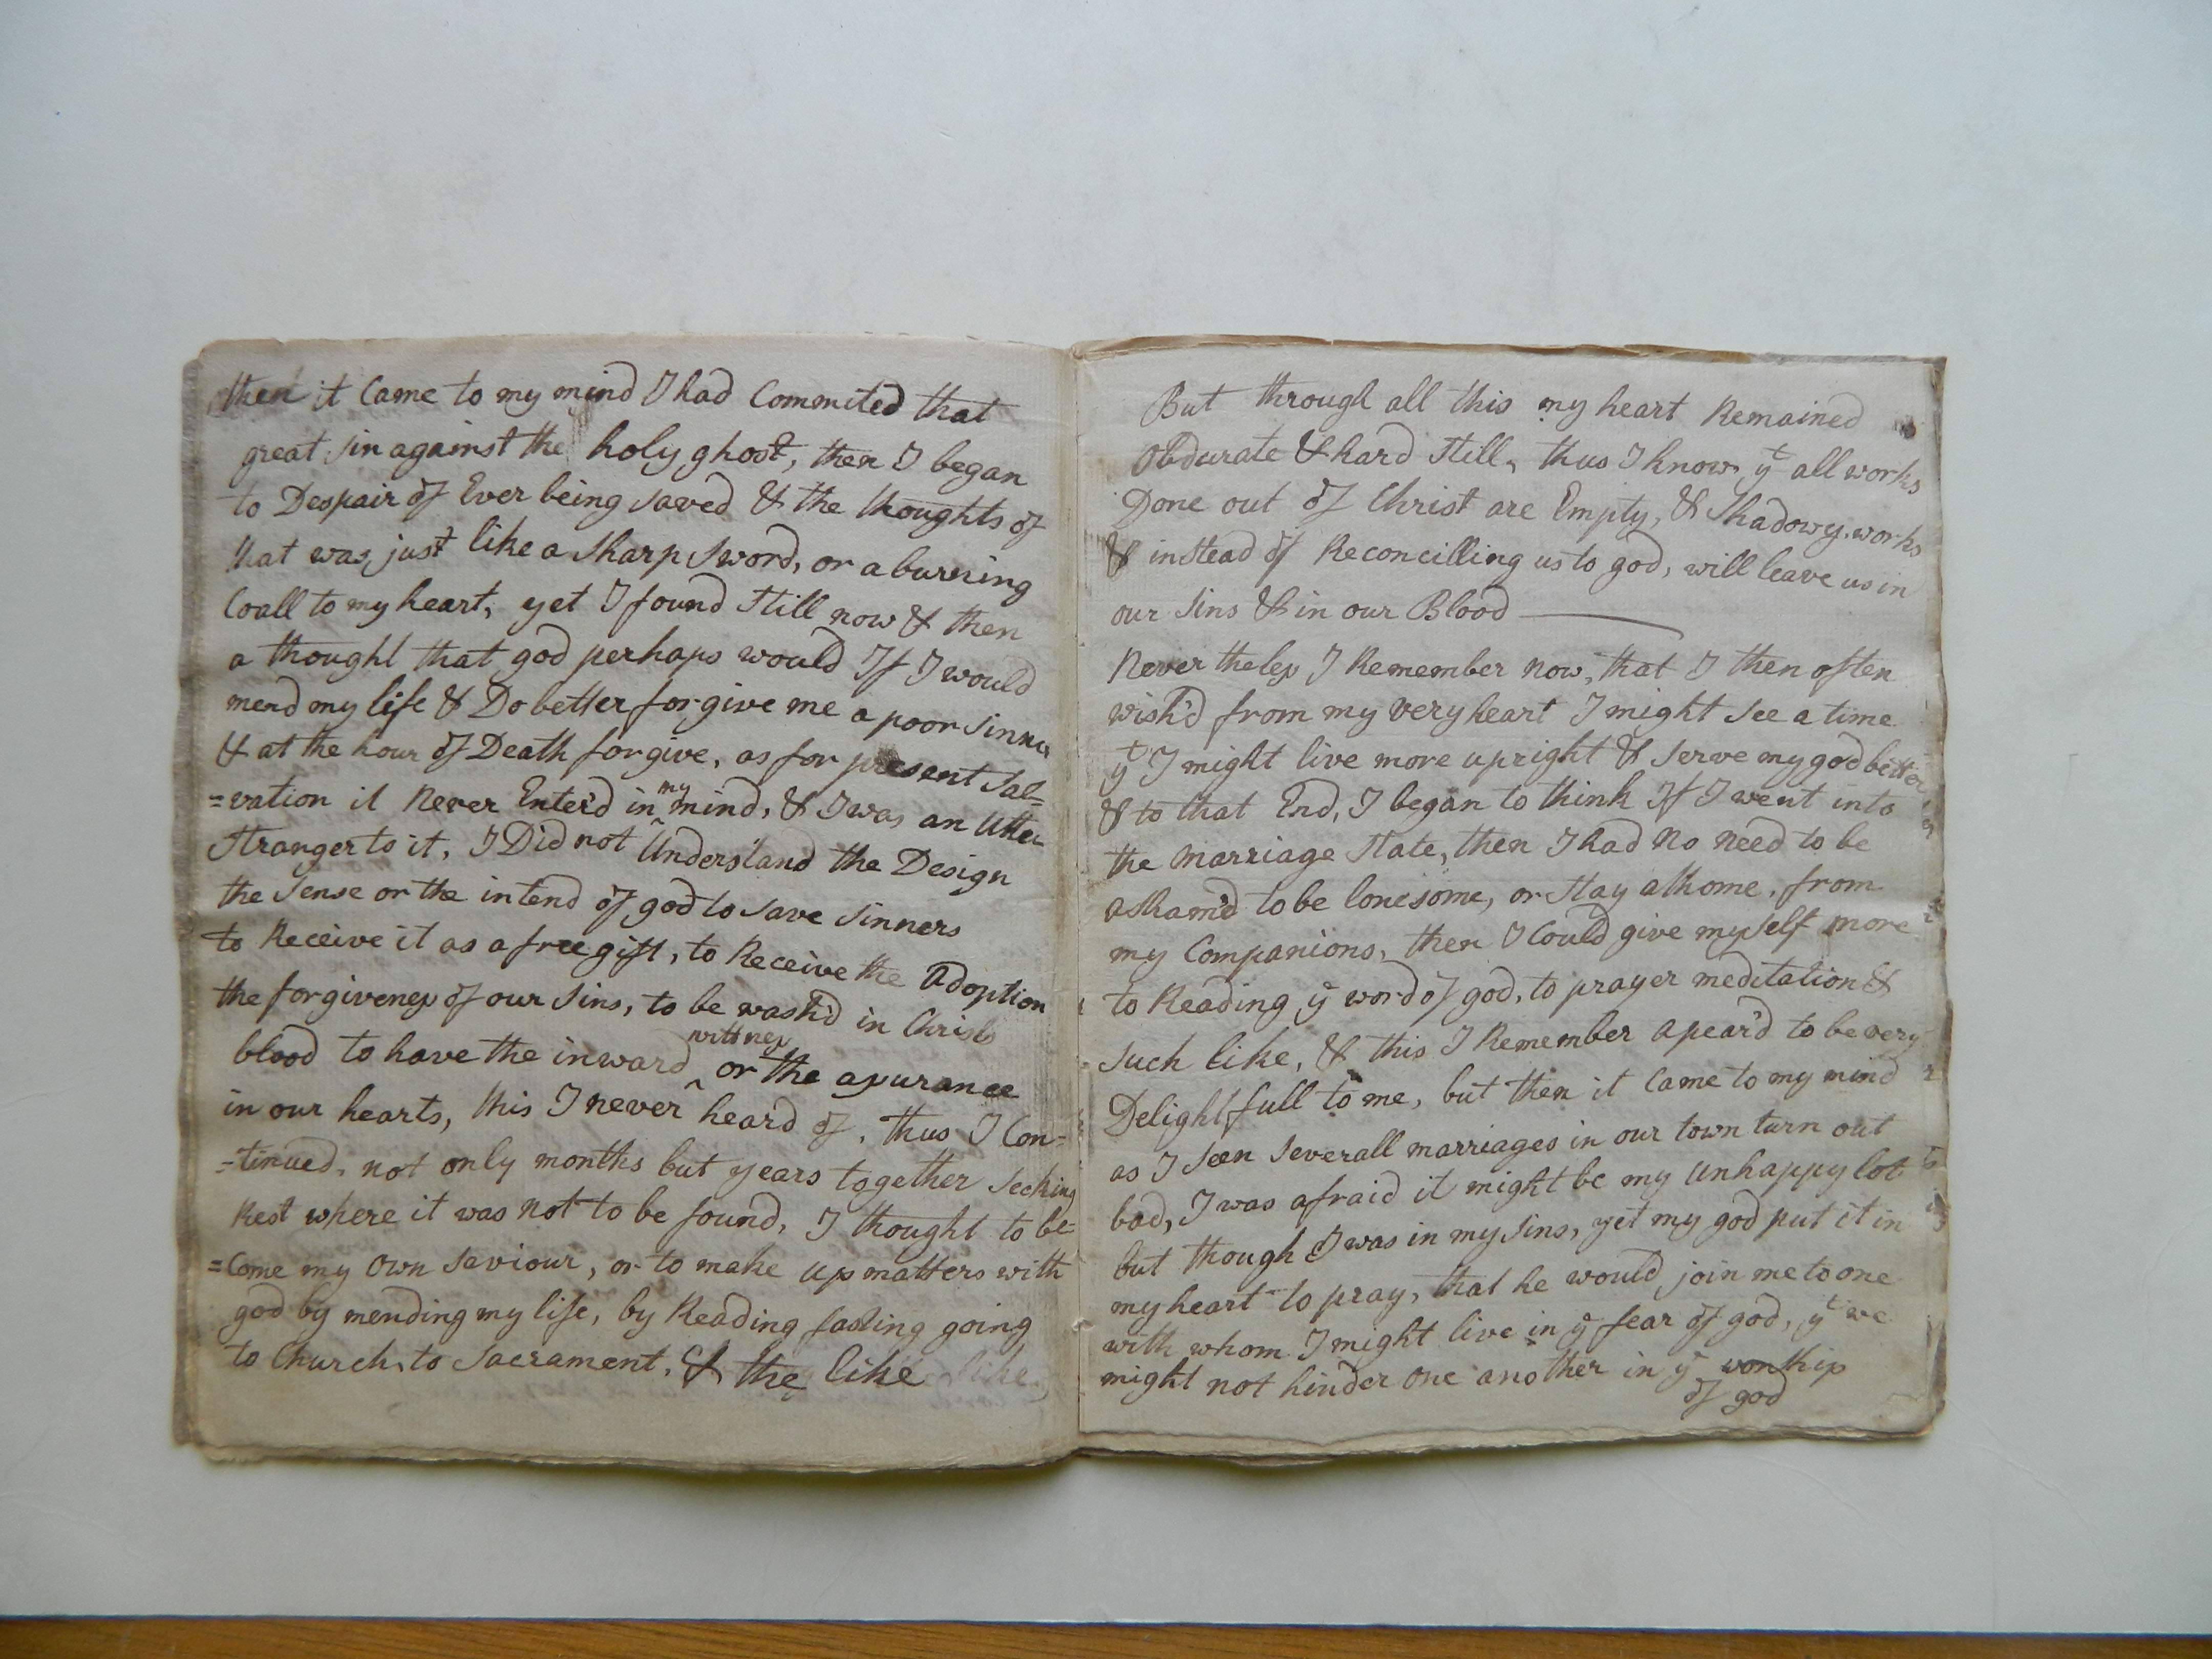 then it Came to my mind I had Commited that
great sin against the holy ghost, then I began
to Despair of Ever being saved & the thoughts of
that was just like a sharp sword, or a burning
Coall to my heart, yet I found still now & then
a thought that god perhaps would If I would
mend my life & Do better forgive me a poor sinner
& at the hour of Death forgive, as for present Sal=
=vation it Never Enter'd in my mind, & I was an Utter
stranger to it, I Did not Understand the Design
the sense or the intend of god to save sinners
to Receive it as a free gift, to Receive the Adoption
the forgiveness of our sins, to be wash'd in Christs
blood to have the inward wittness or the assurance
in our hearts, this I never heard of, thus I Con=
=tinued, not only months but years together seeking
Rest where it was not to be found, I thought to be=
=Come my own saviour, or to make up matters with
god by mending my life, by Reading fasting going
to Church, to Sacrament, & the like like
But through all this my heart Remained
Obdurate & hard still, thus I know yt all works
Done out of Christ are Empty, & shadowy works
& instead of Reconcilling us to god, will leave us in
our sins & in our Blood
Never theless I Remember now, that I then often
wish'd from my very heart I might see a time
yt I might live more upright & serve my god better
& to that End, I began to think If I went into
the marriage state, then I had no need to be
asham'd to be lonesome, or stay at home, from
my Companions, then I Could give my self more
to Reading ye word of god, to prayer meditation &
such like, & this I Remember apear'd to be very
Delightfull to me, but then it Came to my mind
as I seen severall marriages in our town turn out
bad, I was afraid it might be my unhappy lot
but though I was in my sins, yet my god put it in
my heart to pray, that he would join me to one
with whom I might live in ye fear of god, yt we
might not hinder one another in ye worship
of god